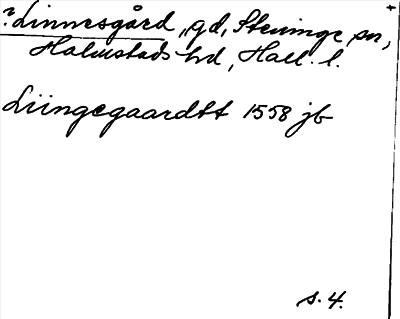 ? Linnesgård, gd, Steninge sn,
Halmstads hd, Hall. l.
Liingegaardtt 1558 jb
s. 4.